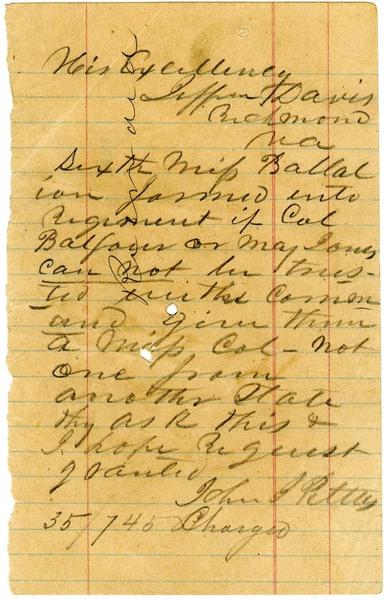 His Excellency
Jeffn Davis
Richmond
Va
Sixth Miss Battal
ion formed into
Regiment if Col
Balfour or Maj Jones
can not be trus-
ted with comm
and give them
a Miss Col - not
one from
another State
they ask this &
I hope Request
granted
John J Pettus
35/745 Charged